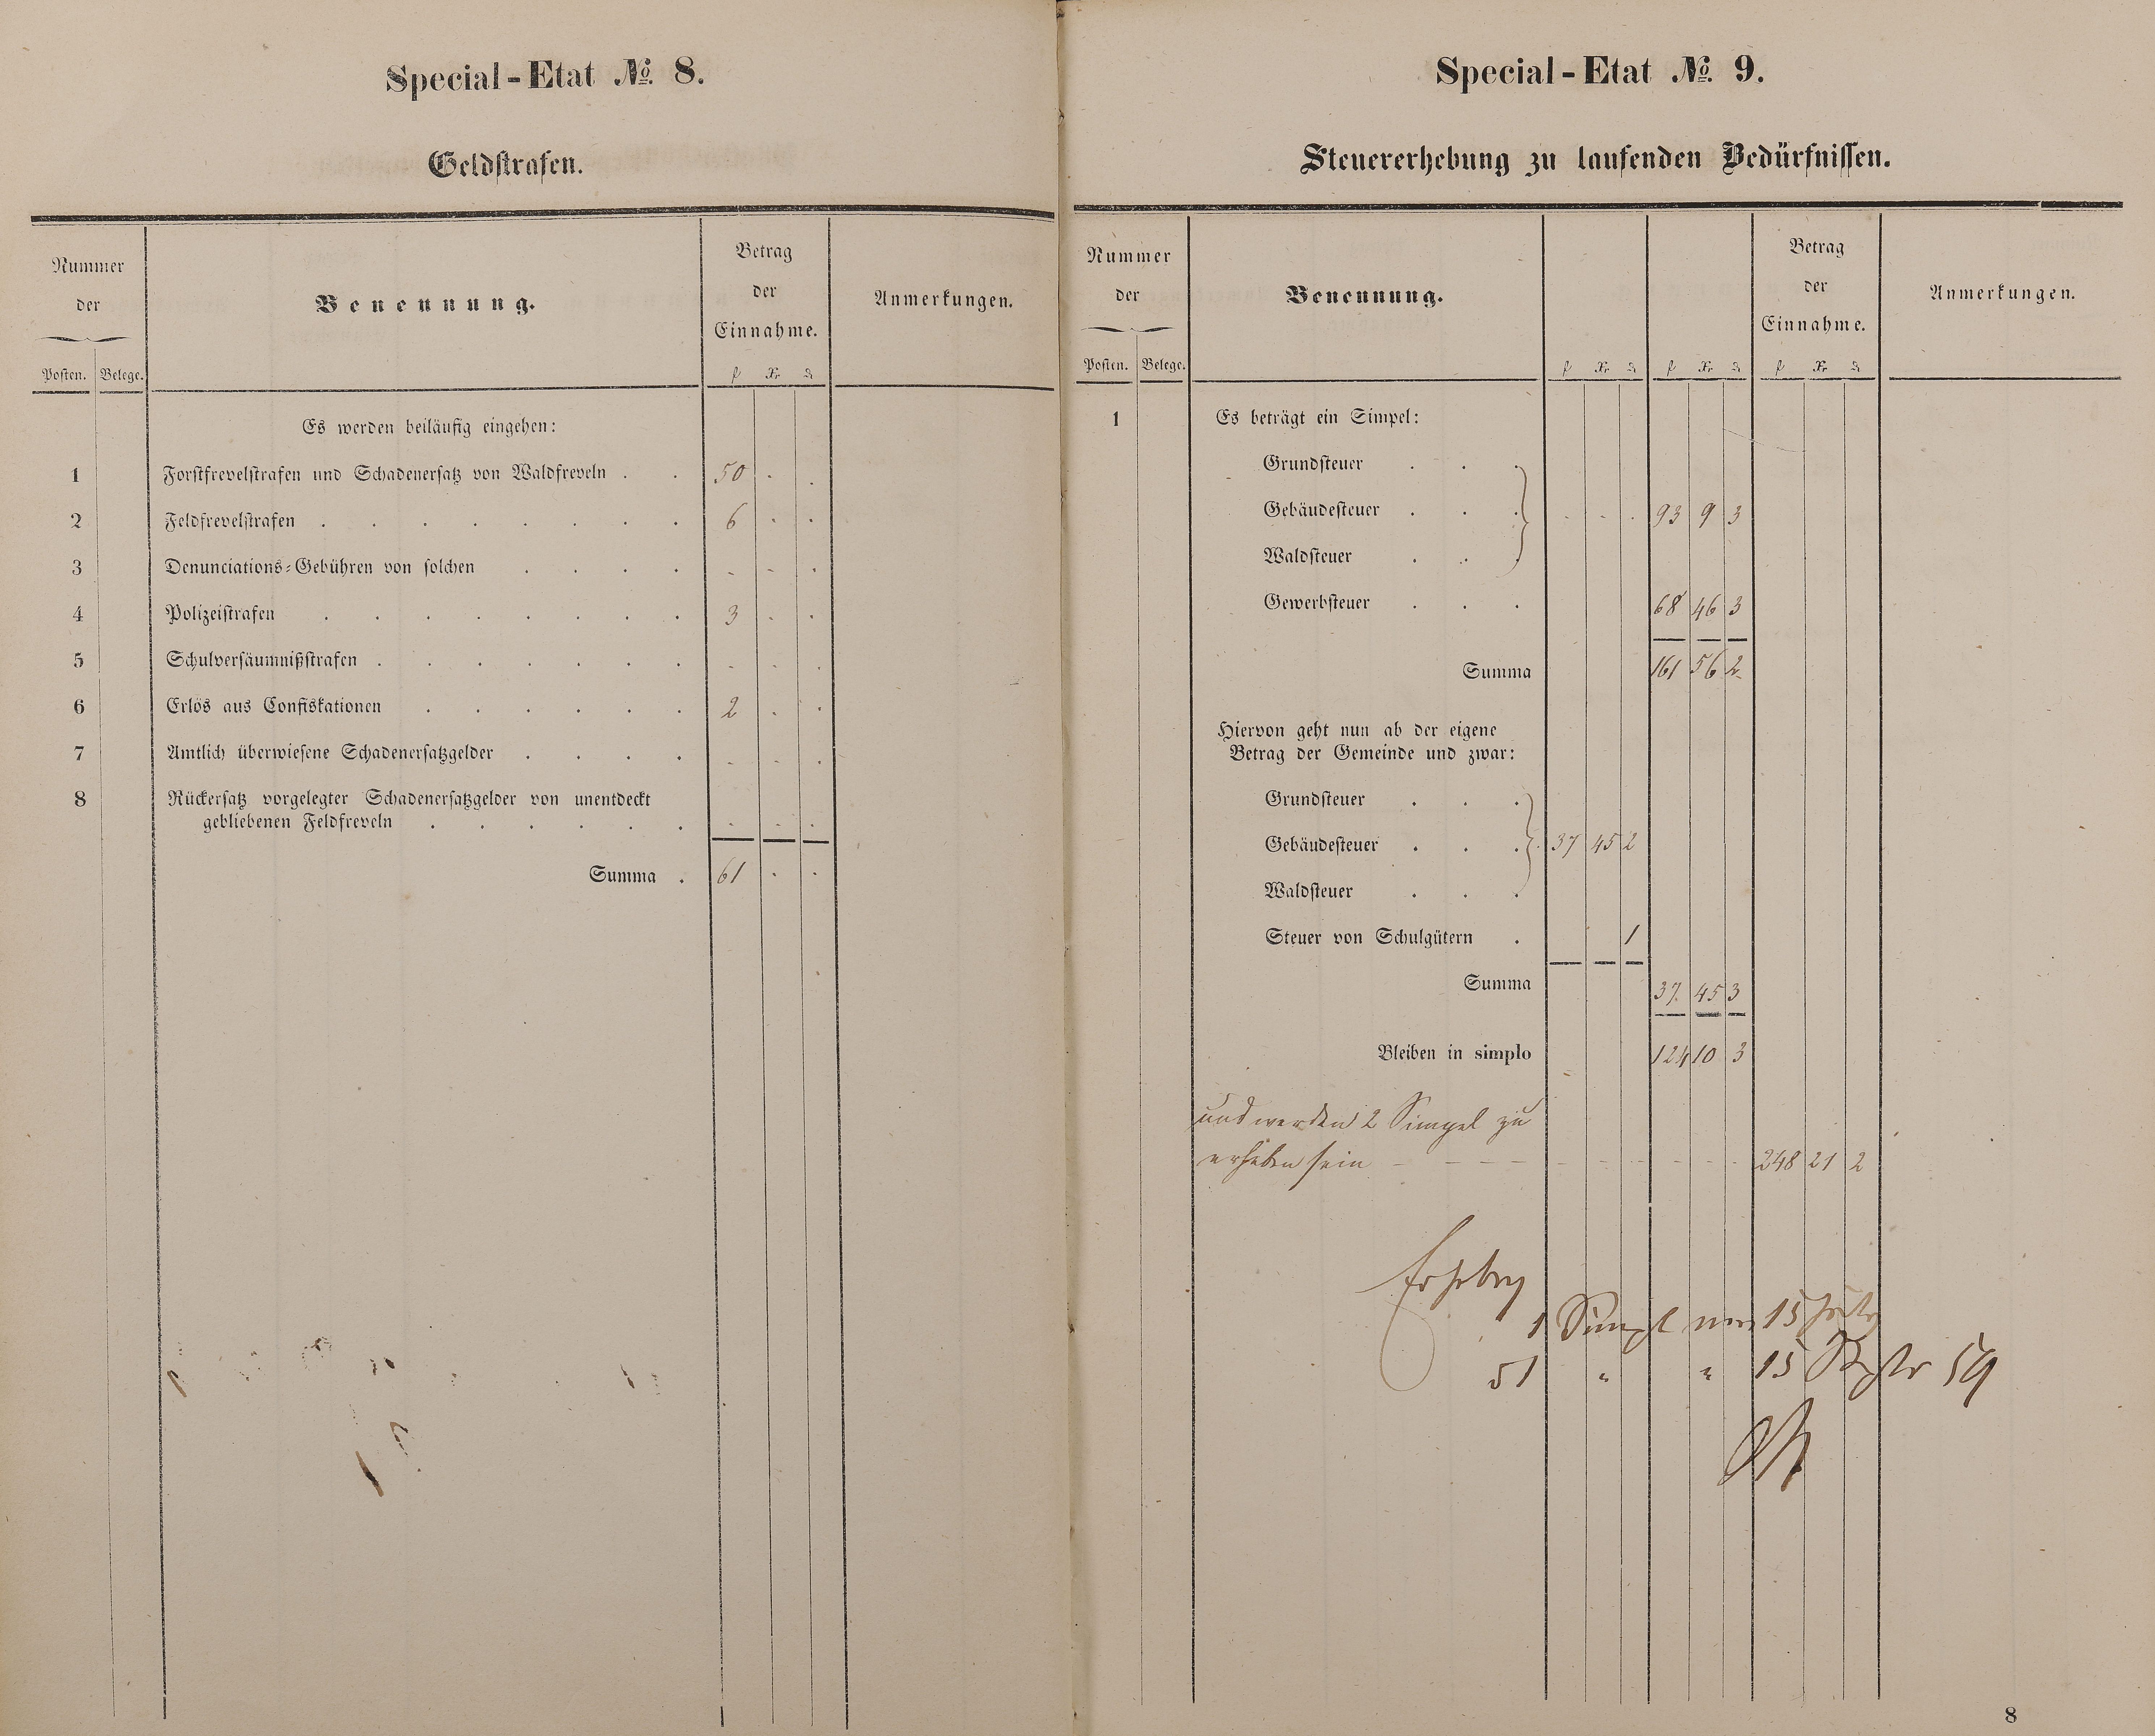 Special-Etat № 8.
Geldstrafen.
Nummer der
Posten. Belege.
Benennung.
Betrag der Einnahme.
fl Xr ₰
Anmerkungen.
Es werden beiläufig eingehen:
1 Forstfrevelstrafen und Schadenersatz von Waldfreveln . . 50 . .
2 Feldfrevelstrafen . . . . . . . . 6 . .
3 Denunciations-Gebühren von solchen . . . . - - .
4 Polizeistrafen . . . . . . . . 3 . .
5 Schulversäumnißstrafen . . . . . . . - . .
6 Erlös aus Confiskationen . . . . . . 2 . .
7 Amtlich überwiesene Schadenersatzgelder . . . . - - .
8 Rückersatz vorgelegter Schadenersatzgelder von unentdeckt
gebliebenen Feldfreveln . . . . . . - - .
Summa . 61 . .
Special-Etat № 9.
Steuererhebung zu laufenden Bedürfnissen.
Nummer der
Posten. Belege.
Benennung.
fl Xr ₰
fl Xr ₰
Betrag der Einnahme.
fl Xr ₰
Anmerkungen.
1 Es beträgt ein Simpel:
Grundsteuer . . .
Gebäudesteuer . . . - - . 93 9 3
Waldsteuer . . .
Gewerbsteuer . . . 68 46 3
Summa 161 56 2
Hiervon geht nun ab der eigene
Betrag der Gemeinde und zwar:
Grundsteuer . . .
Gebäudesteuer . . . 37 45 2
Waldsteuer . . .
Steuer von Schulgütern . 1
Summa 37. 45 3
Bleiben in simplo 124 10 3
und werden 2 Simpel zu
erheben sein - - - - 248 21 2
1 Simpel 15
1 " " 15 59
8